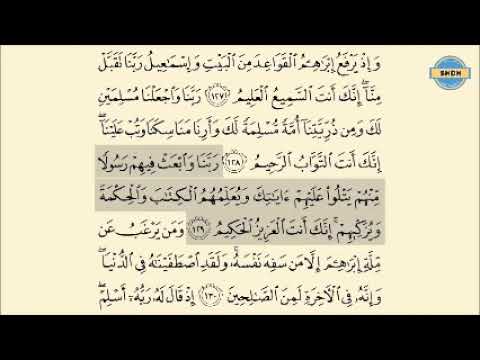 وَإِذْ يَرْفَعُ إِبْرَٰهِـۧمُ ٱلْقَوَاعِدَ مِنَ ٱلْبَيْتِ وَإِسْمَٰعِيلُ رَبَّنَا تَقَبَّلْ
مِنَّآ ۖ إِنَّكَ أَنتَ ٱلسَّمِيعُ ٱلْعَلِيمُ ١٢٧ رَبَّنَا وَٱجْعَلْنَا مُسْلِمَيْنِ
لَكَ وَمِن ذُرِّيَّتِنَآ أُمَّةً مُّسْلِمَةً لَّكَ وَأَرِنَا مَنَاسِكَنَا وَتُبْ عَلَيْنَآ ۖ
إِنَّكَ أَنتَ ٱلتَّوَّابُ ٱلرَّحِيمُ ١٢٨ رَبَّنَا وَٱبْعَثْ فِيهِمْ رَسُولًا
مِّنْهُمْ يَتْلُوا۟ عَلَيْهِمْ ءَايَٰتِكَ وَيُعَلِّمُهُمُ ٱلْكِتَٰبَ وَٱلْحِكْمَةَ
وَيُزَكِّيهِمْ ۚ إِنَّكَ أَنتَ ٱلْعَزِيزُ ٱلْحَكِيمُ ١٢٩ وَمَن يَرْغَبُ عَن
مِّلَّةِ إِبْرَٰهِـۧمَ إِلَّا مَن سَفِهَ نَفْسَهُۥ ۚ وَلَقَدِ ٱصْطَفَيْنَٰهُ فِى ٱلدُّنْيَا ۖ
وَإِنَّهُۥ فِى ٱلْـَٔاخِرَةِ لَمِنَ ٱلصَّٰلِحِينَ ١٣٠ إِذْ قَالَ لَهُۥ رَبُّهُۥٓ أَسْلِمْ ۖ